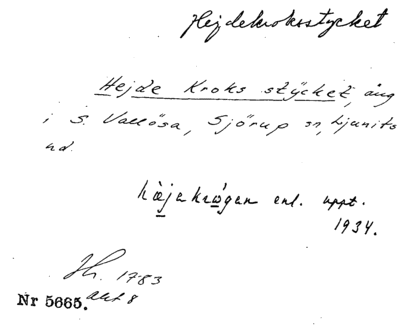 Hejdekroksstycket
Hejde Kroks stÿcket, äng
i S. Vallösa, Sjörup sn, Ljunits
hd.
hæjakrogan enl. uppt.
1934.
Jh. 1783
Akt 8
Nr 5665.